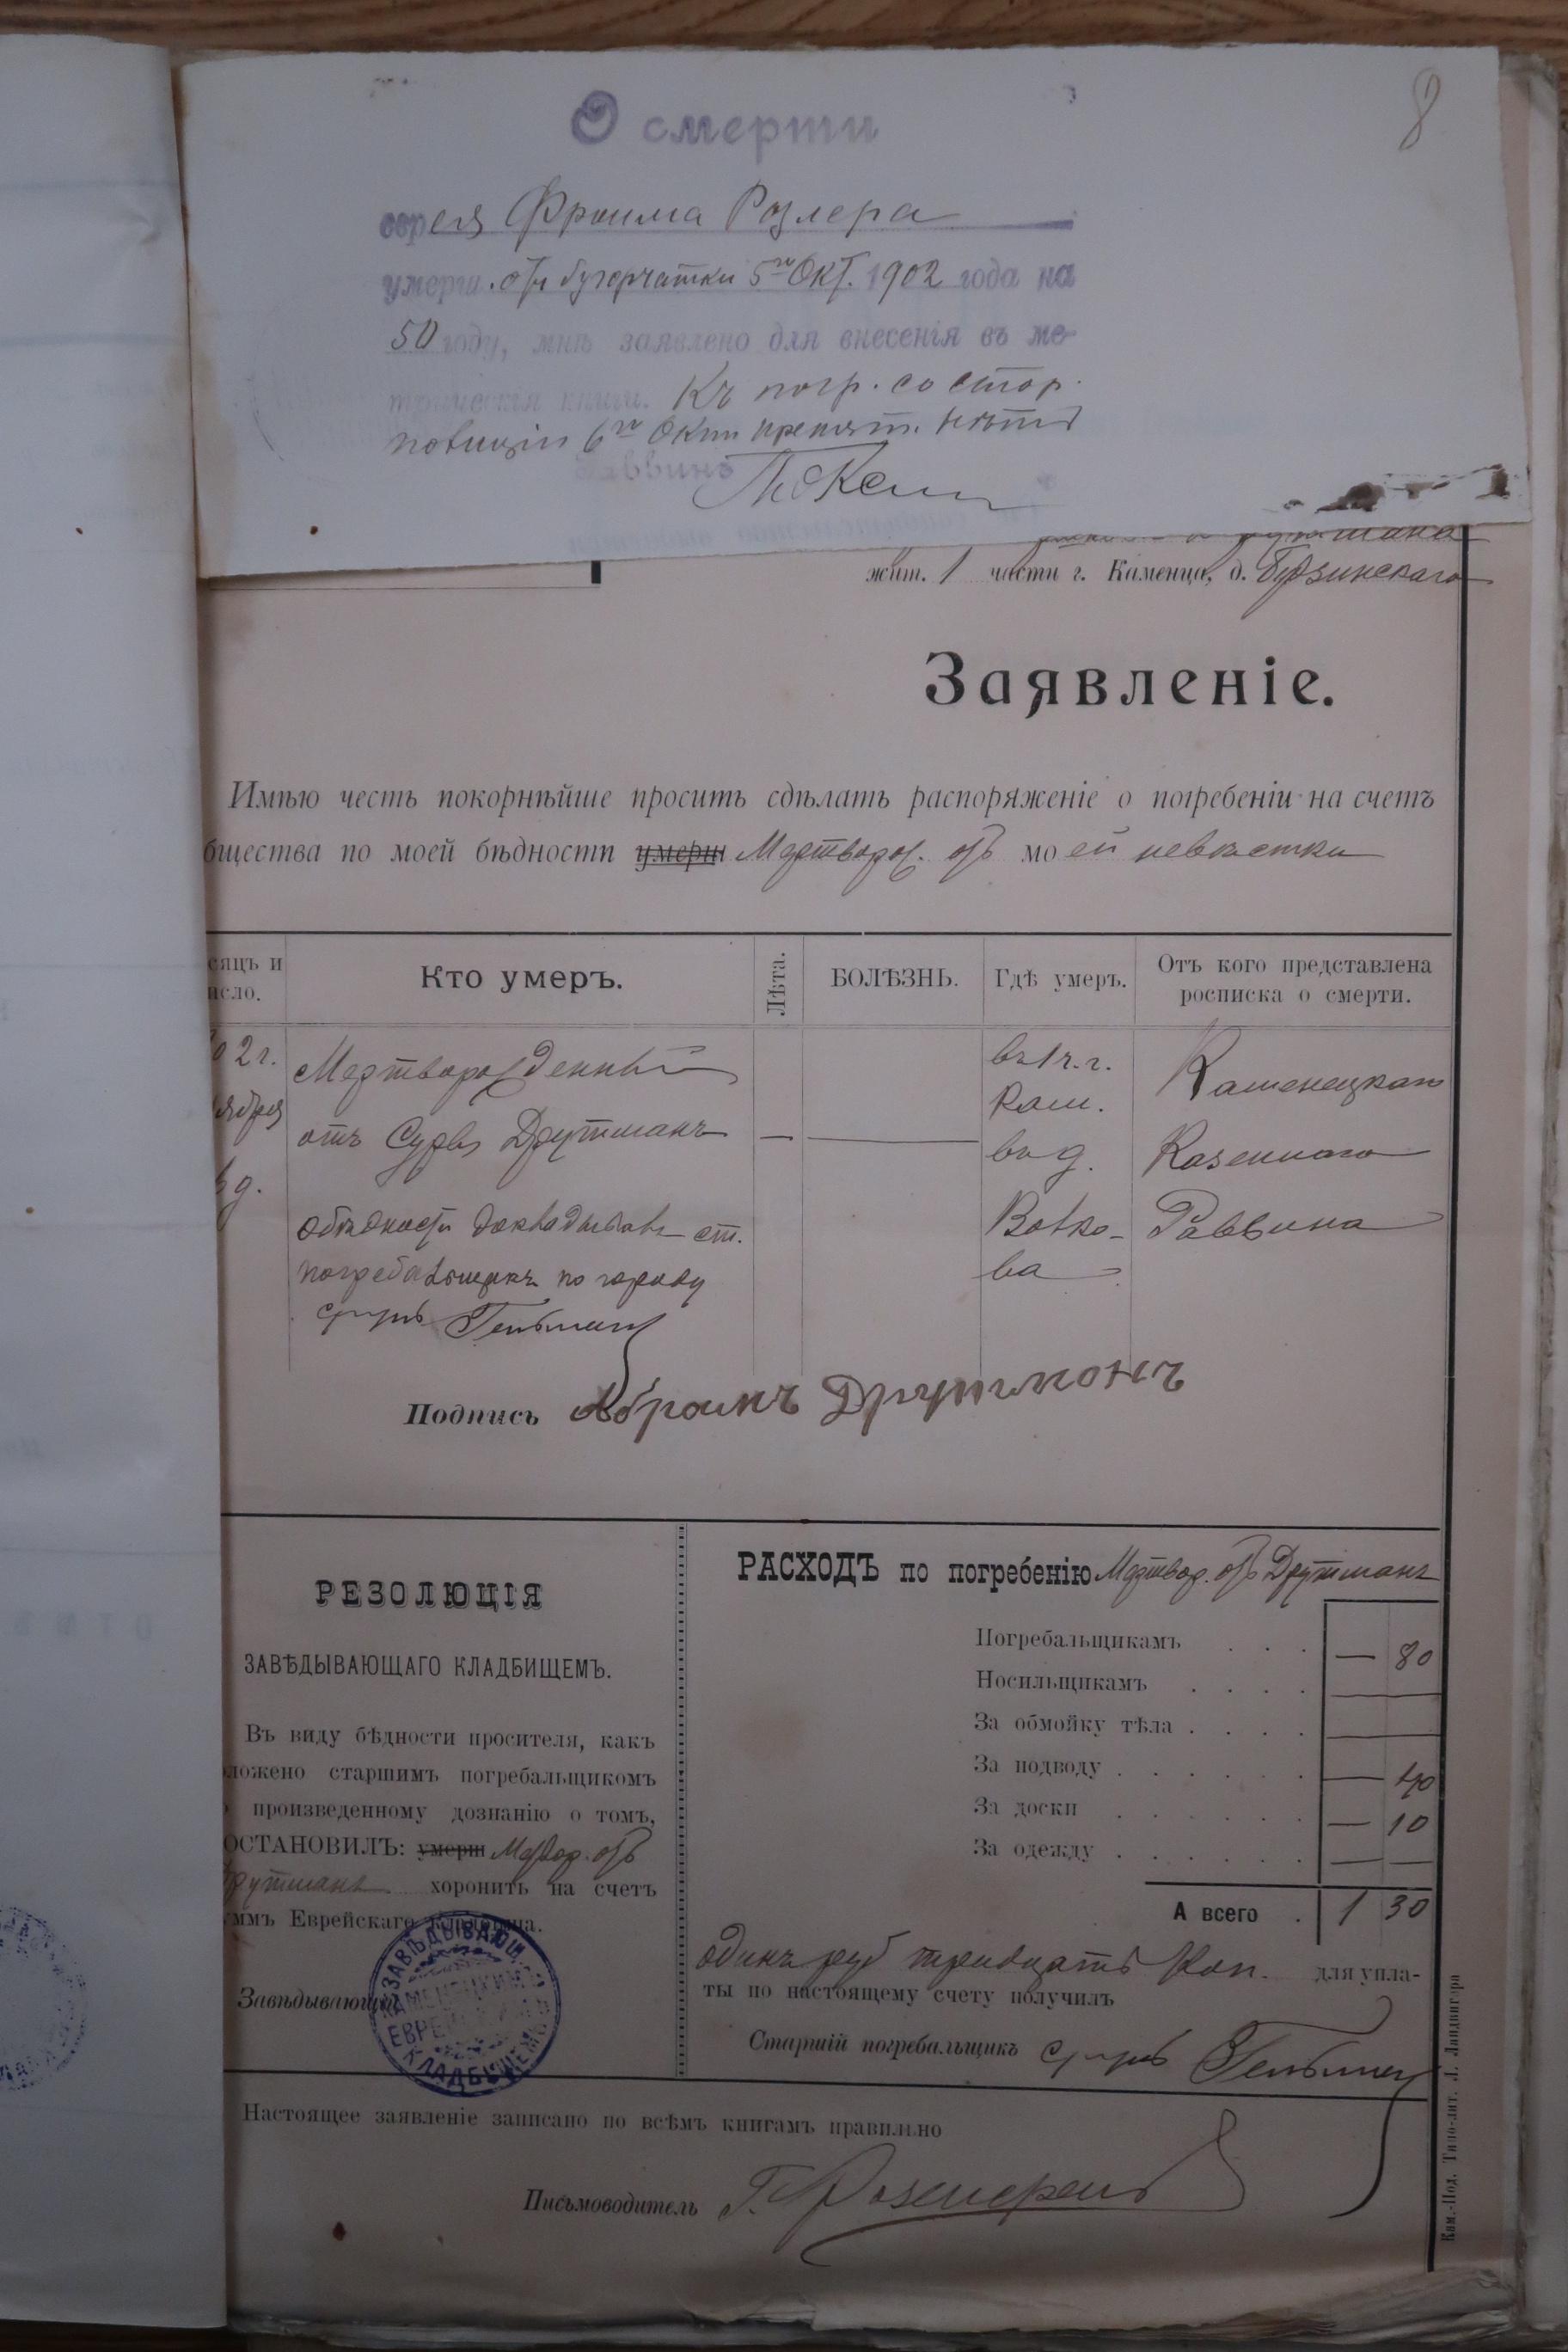 8
О смерти
еврея Фроима Розлера
умерш. отъ бугорчатки 5го Окт. 1902 года на
50 году, мнѣ заявлено для внесенія въ ме-
трическія книги. Къ погр. со стор.
полиціи 6го Окт препят. нѣтъ
Раввинъ
жит. 1 части г. Каменца, д.
Заявленіе.
Имѣю честь покорнѣйше просить сдѣлать распоряженіе о погребеніи на счетъ
бщества по моей бѣдности умерш Мертворож. отъ моей невѣстки
сяцъ и
исло.
Кто умеръ.
Лѣта.
БОЛѢЗНЬ.
Гдѣ умеръ.
Отъ кого представлена
росписка о смерти.
02 г.
ября
д.
Мертворожденный
отъ Суры Друтманъ
—
—
въ 1 ч. г.
Кам.
въ д.
Волко-
ва
Каменецкаго
Казеннаго
Раввина
о бѣдности докладывалъ ст.
погребальщикъ по городу
Подпись Абрамъ Друтманъ
РЕЗОЛЮЦІЯ
ЗАВѢДЫВАЮЩАГО КЛАДБИЩЕМЪ.
Въ виду бѣдности просителя, какъ
ложено старшимъ погребальщикомъ
произведенному дознанію о томъ,
ОСТАНОВИЛЪ: умерш Мертвор. отъ
рутманъ хоронить на счетъ
уммъ Еврейскаго кладбища.
Завѣдывающій
ЗАВѢДЫВАЮЩІЙ
КАМЕНЕЦКИМЪ
ЕВРЕЙСКИМЪ
КЛАДБИЩЕМЪ
РАСХОДЪ по погребенію Мертвор. отъ Друтманъ
Погребальщикамъ . . . — 80
Носильщикамъ . . . . —
За обмойку тѣла . . . . —
За подводу . . . . . . — 40
За доски . . . . . . — 10
За одежду . . . . . . — —
А всего . 1 30
одинъ руб тридцать коп. для упла-
ты по настоящему счету получилъ
Старшій погребальщикъ
Настоящее заявленіе записано по всѣмъ книгамъ правильно
Письмоводитель Г.
Кам.-Под. Типо-лит. Л. Ландвигера